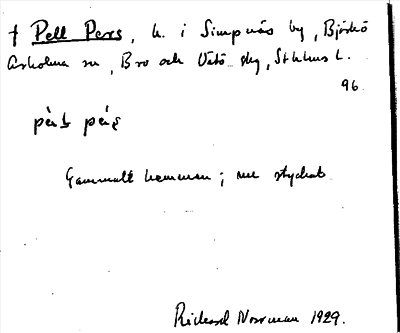 † Pell Pers, h. i Simpnäs by, Björkö
Arholma sn, Bro och Vätö skg, Sthlms l.
96.
Gammalt hemman; nu styckat.
Rickard Norrman 1929.